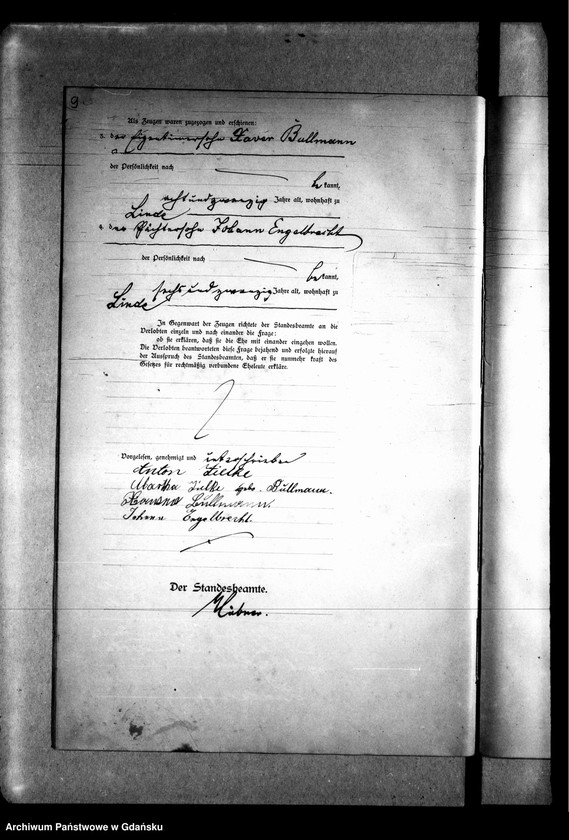 9
Als Zeugen waren zugezogen und erschienen:
3. der Eigentümersohn Xaver Bullmann
der Persönlichkeit nach
be kannt,
achtundzwanzig Jahre alt, wohnhaft zu
Linde
4. der Pächtersohn Johann Engelbrecht
der Persönlichkeit nach
be kannt,
sechsundzwanzig Jahre alt, wohnhaft zu
Linde
In Gegenwart der Zeugen richtete der Standesbeamte an die
Verlobten einzeln und nach einander die Frage:
ob sie erklären, daß sie die Ehe mit einander eingehen wollen.
Die Verlobten beantworteten diese Frage bejahend und erfolgte hierauf
der Ausspruch des Standesbeamten, daß er sie nunmehr kraft des
Gesetzes für rechtmäßig verbundene Eheleute erkläre.
Vorgelesen, genehmigt und unterschrieben
Anton Zielke
Martha Zielke geb. Bullmann.
Bullmann.
Johann Engelbrecht.
Der Standesbeamte.
Hübner.
Archiwum Państwowe w Gdańsku